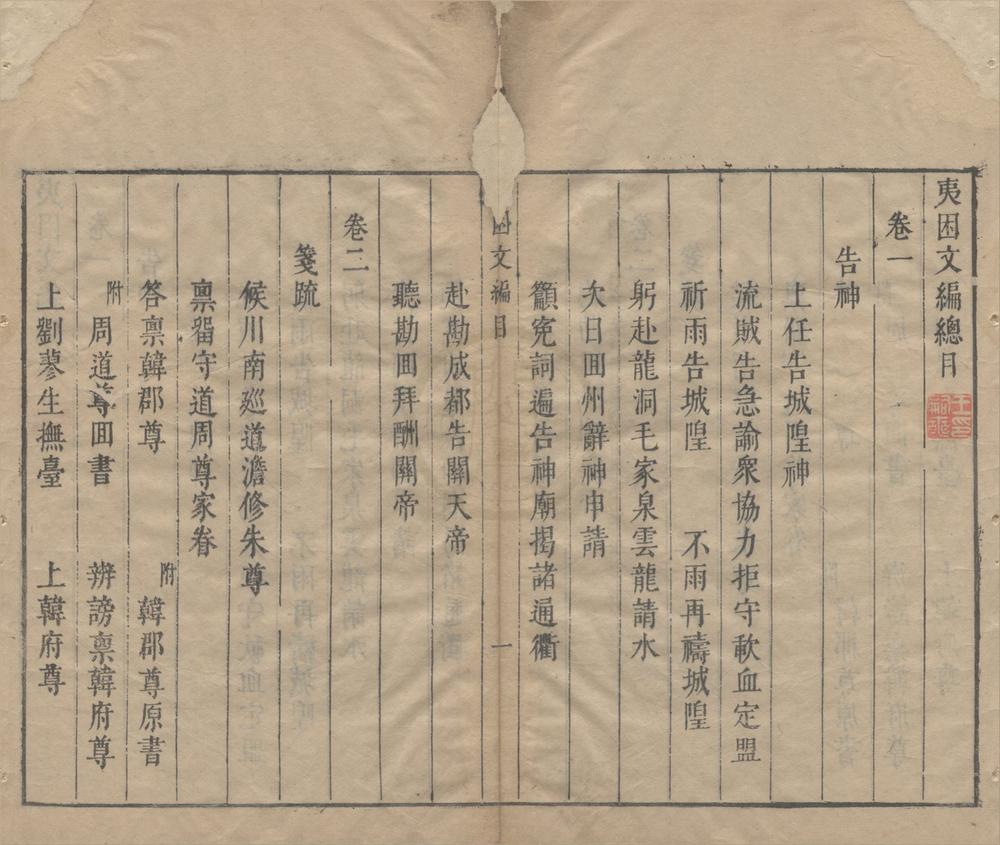 夷困文編總目
卷一
告神
上任告城隍神
流賊告急諭衆協力拒守歃血定盟
祈雨告城隍　不雨再禱城隍
躬赴龍洞毛家泉雲龍請水
久日囬州辭神申請
籲寃詞遍告神廟揭諸通衢
困文編目　一
赴勘成都告關天帝
聽勘囬拜酬關帝
卷二
箋疏
候川南廵道澹修朱尊
禀畱守道周尊家眷
答禀韓郡尊　附韓郡尊原書
附周道尊囬書　辨謗禀韓府尊
上劉蓼生撫臺　上韓府尊